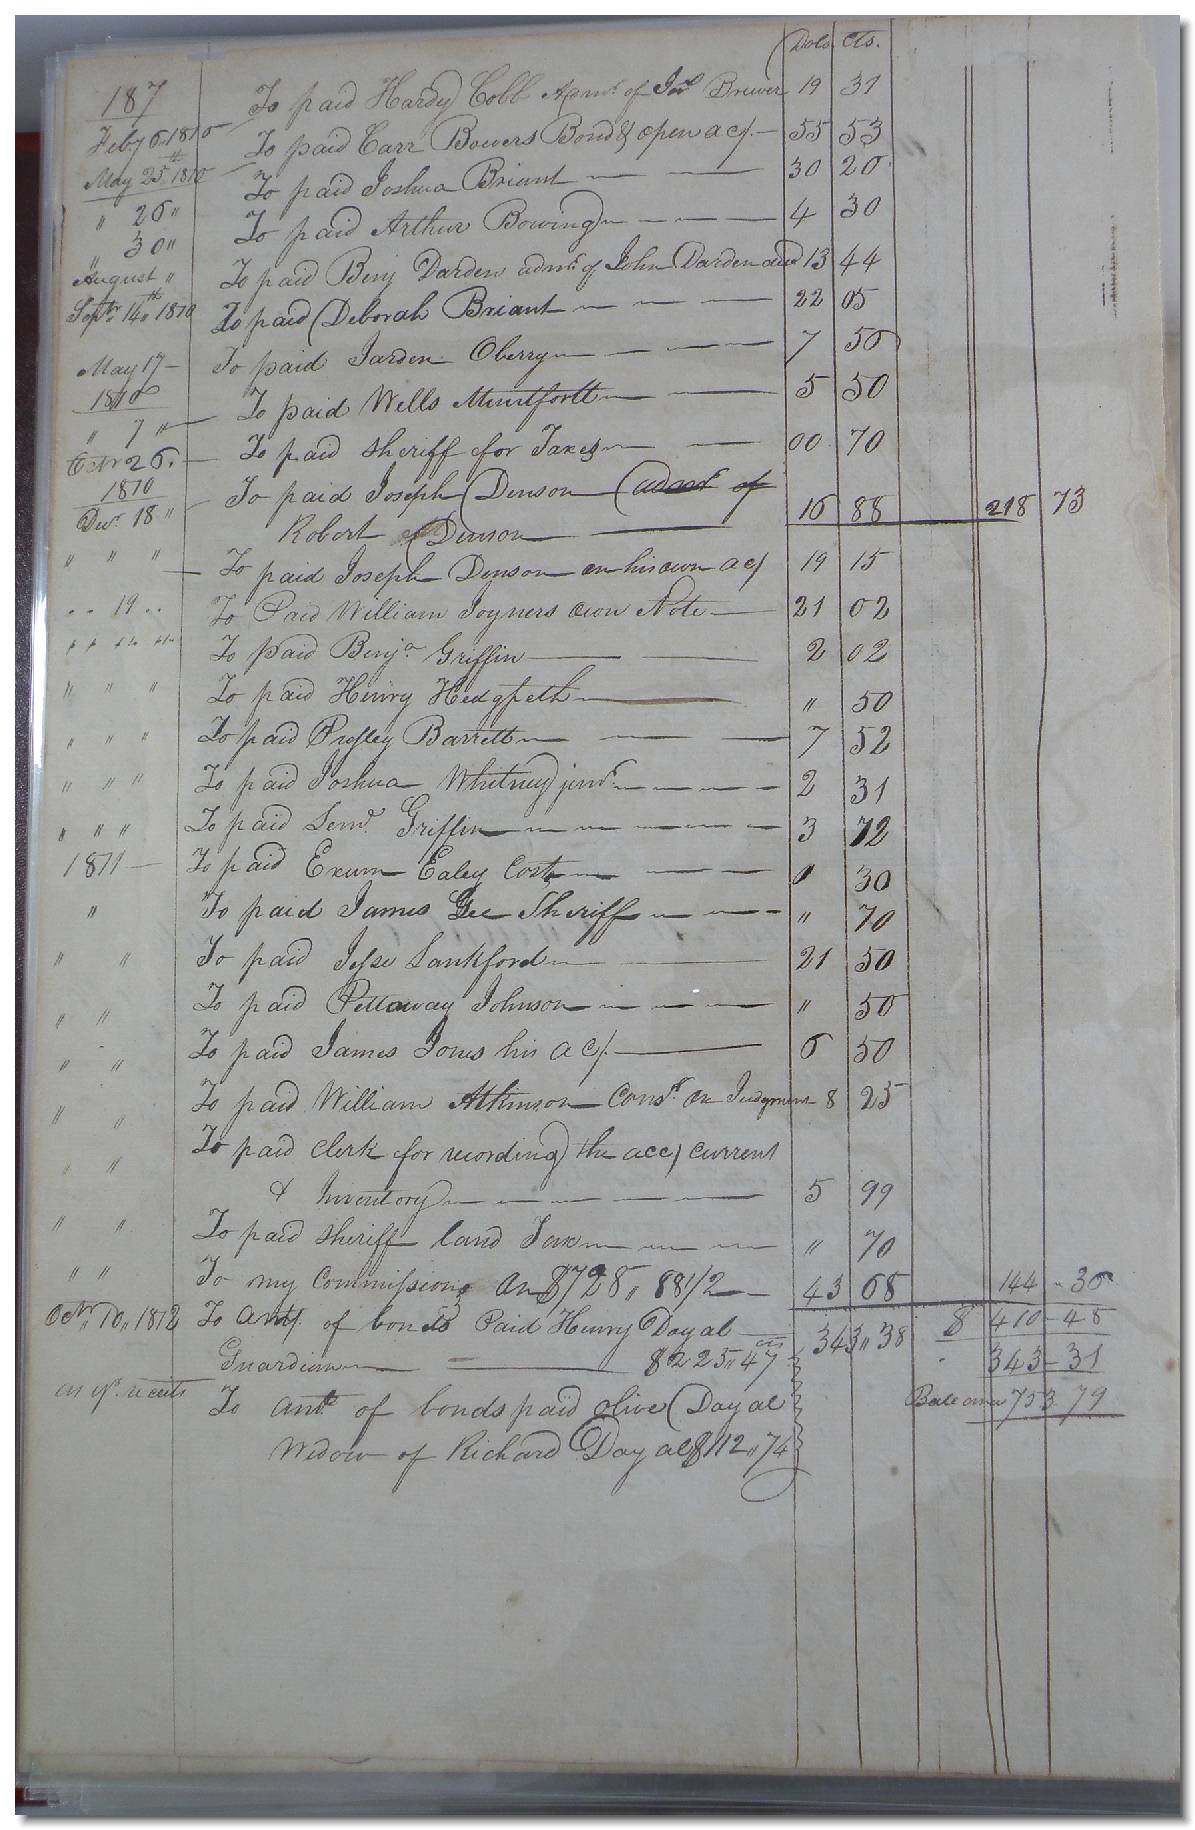 Dols. Cts.
187
To paid Hardy Cobb Admr. of Jno. Brewer 19 31
Feby 6. 1810 To paid Carr Bowers Bond & open ac/. 55 53
May 25th 1810 To paid Joshua Briant 30 20
" 26 " To paid Arthur Bowing 4 30
" 30 "
August " To paid Benj Darden admr. of John Darden decd 13 44
Septr. 14th 1810 To paid Deborah Briant 22 05
May 17 To paid Jarden Oberry 7 50
1810
" 7 " To paid Wells Muntfortt 5 50
Octr 26. To paid sheriff for Taxes 00 70
1810
Decr. 18 " To paid Joseph Denson admr of
Robert Denson 16 88 218 73
" " " To paid Joseph Denson on his own ac/ 19 15
" " 19 " " To Paid William Joyners own Note 21 02
" " " " To paid Benja. Griffin 2 02
" " " To paid Henry Hedgpeth " 50
" " " To paid Presley Barrett 7 52
" " " To paid Joshua Whitney junr. 2 31
" " " To paid Lemr. Griffin 3 72
1811 To paid Exum Ealey Cost 0 30
" To paid James Gee Sheriff " 70
" " To paid Jesse Lankford 21 50
" " To paid Pettaway Johnson " 50
" " To paid James Jones his ac/. 6 50
" " To paid William Atkinson Const. on Judgment 8 25
" " To paid clerk for recording the acc/ current
& Inventory 5 99
" " To paid sheriff land Tax " 70
" " To my Commissions on $728 " 88 1/2 43 68 144 - 36
Octr. 10 " 1812 To amt. of bonds Paid Henry Dayal 343 " 38 $ 410 - 48
Guardian $225 " 47 343 - 31
as pr. receits To amt. of bonds paid olive Dayal Balance 753 79
Widow of Richard Dayal $112 " 74